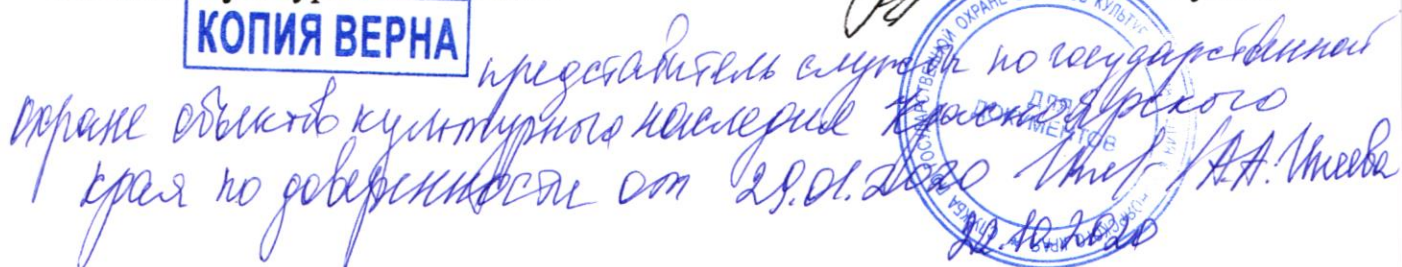 КОПИЯ ВЕРНА
представитель службы по государственной
охране объектов культурного наследия Красноярского
края по доверенности от 29.01.2020 /А.А.
22.10.2020
ДЛЯ
ДОКУМЕНТОВ